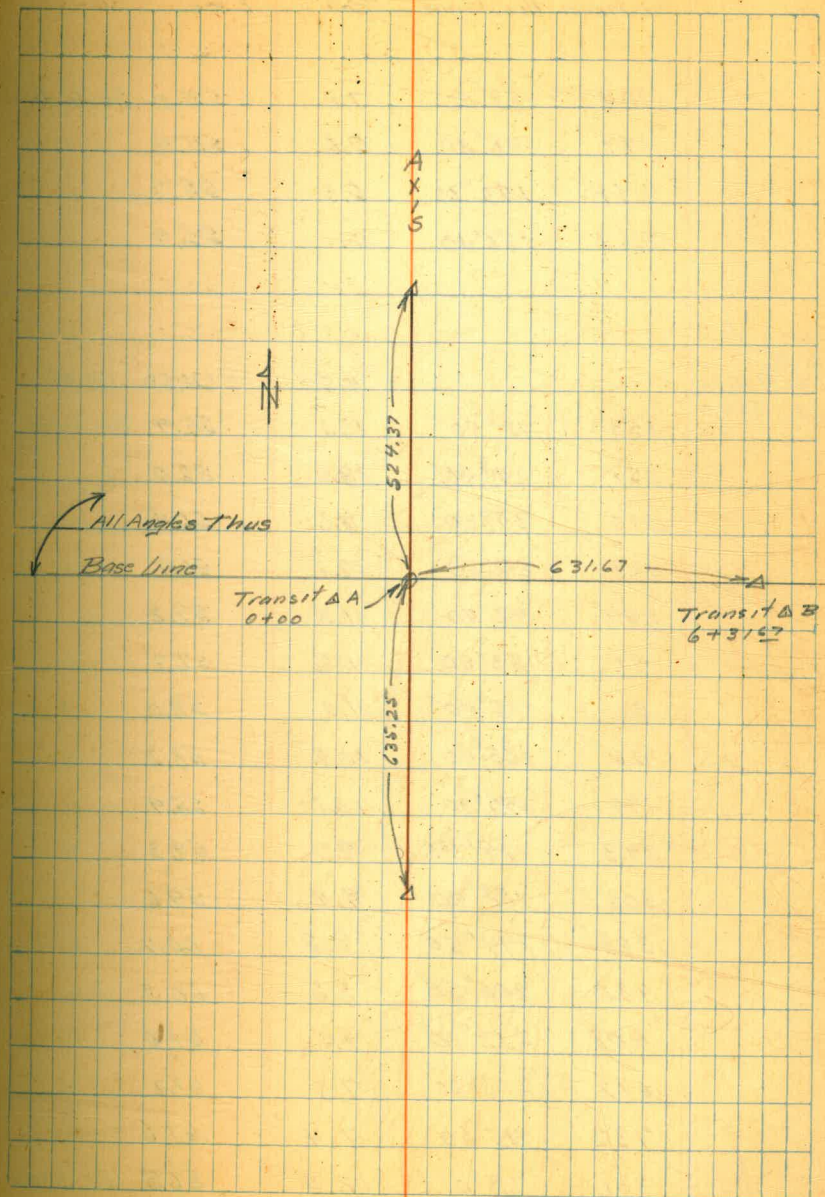 AXIS
N
524.37
All Angles Thus
Base Line
631.67
Transit Δ A
0+00
Transit Δ B
6+31.67
635.25